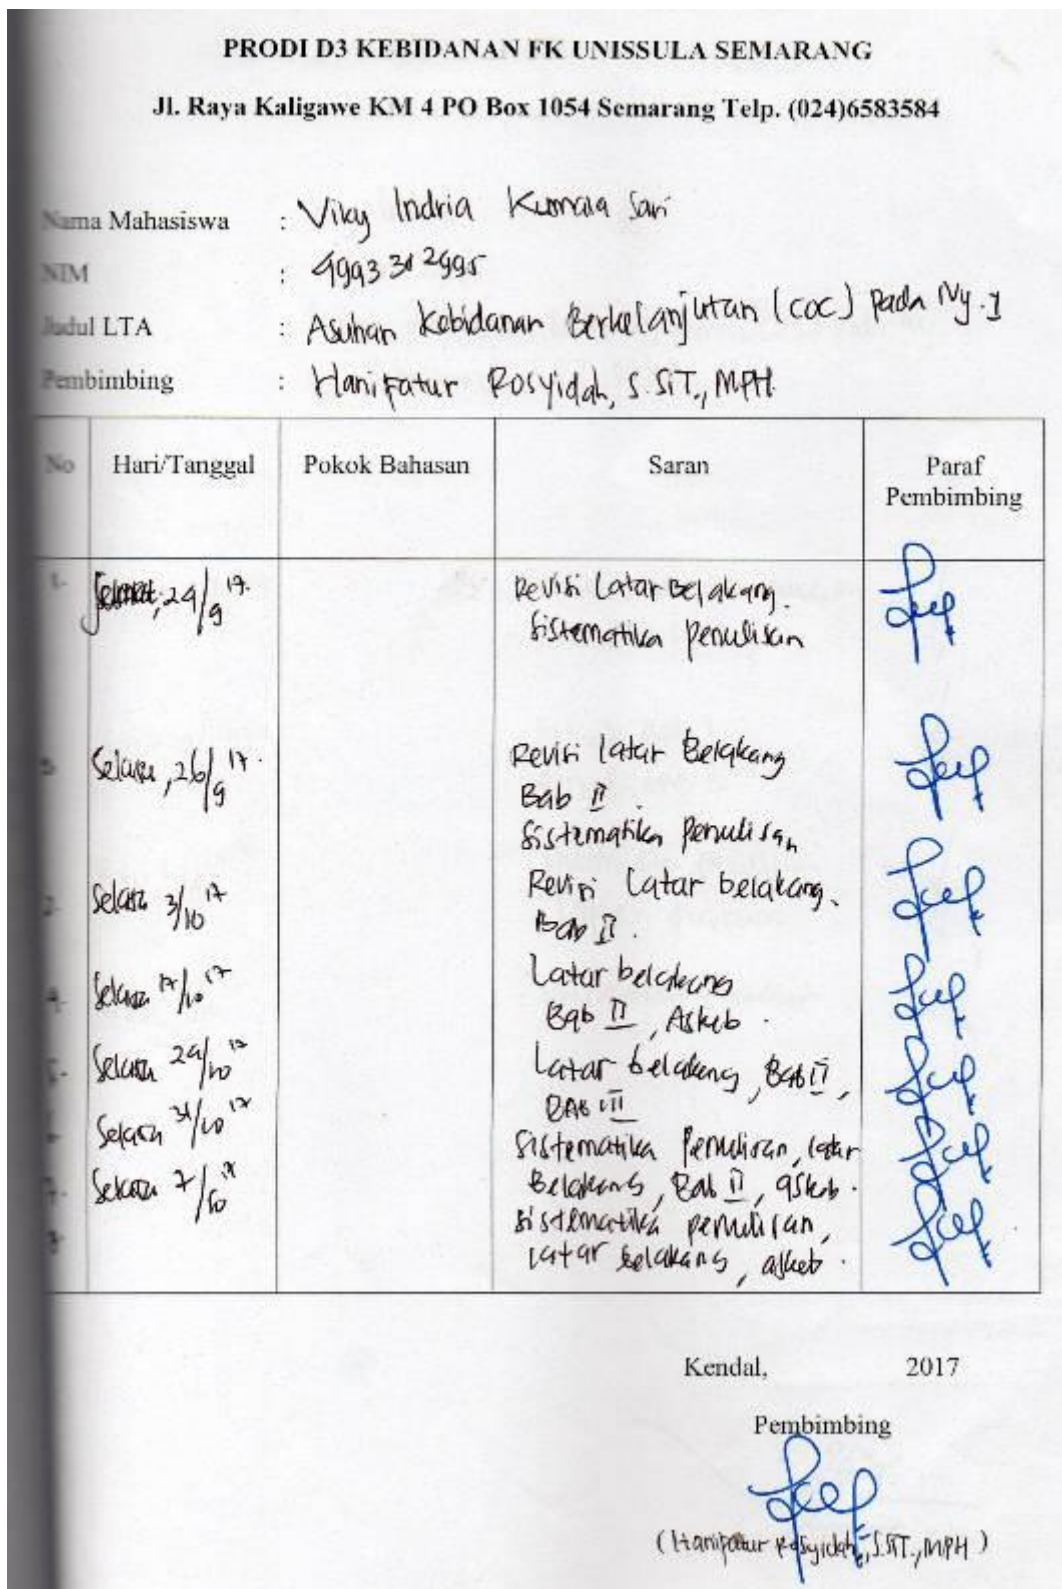 PRODI D3 KEBIDANAN FK UNISSULA SEMARANG
Jl. Raya Kaligawe KM 4 PO Box 1054 Semarang Telp. (024)6583584
Nama Mahasiswa : Viky Indria Kumala Sari
NIM : 4993312995
Judul LTA : Asuhan Kebidanan Berkelanjutan (COC) pada Ny. I
Pembimbing : Hanifatur Rosyidah, S.SiT., MPH
No Hari/Tanggal Pokok Bahasan Saran Paraf Pembimbing
1. 24/9 17. Revisi Latar Belakang.
Sistematika penulisan
Selasa, 26/9 17. Revisi latar Belakang
Bab II
Sistematika Penulisan
Selasa 3/10 17 Revisi Latar belakang.
Bab II.
4. Selasa 17/10 17 Latar belakang
Bab II, Askeb.
5. Selasa 24/10 17 Latar belakang, Bab II,
BAB III
Selasa 31/10 17 Sistematika Penulisan, latar
Belakang, Bab II, askeb.
7. Selasa 7/10 17 sistematika penulisan,
latar belakang, askeb.
Kendal, 2017
Pembimbing
(Hanifatur Rosyidah, S.SiT., MPH)